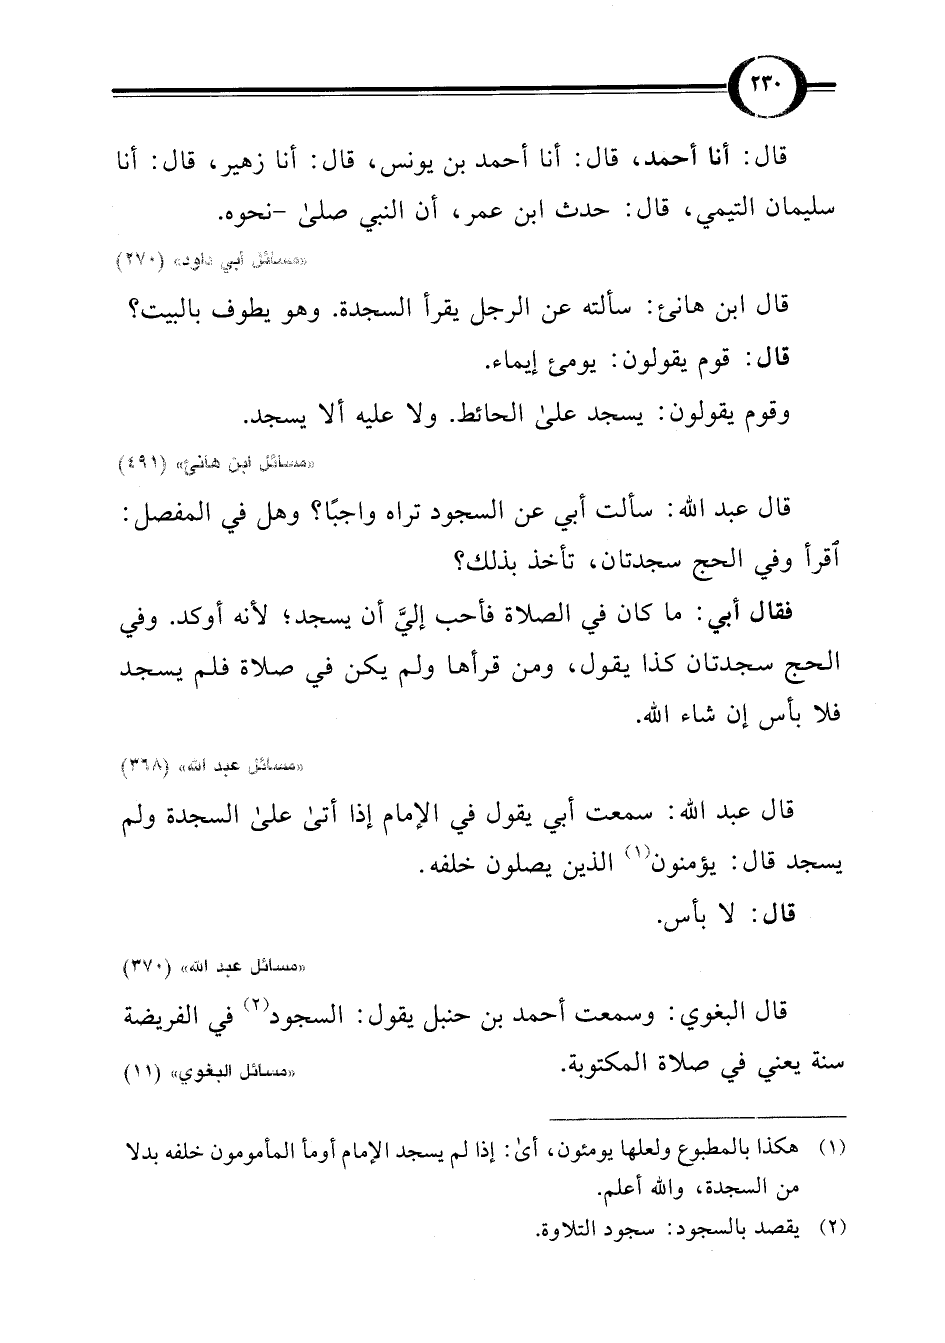 ٢٣٠
قال: أنا أحمد، قال: أنا أحمد بن يونس، قال: أنا زهير، قال: أنا
سليمان التيمي، قال: حدث ابن عمر، أن النبي صلىٰ -نحوه.
«مسائل أبي داود» (٢٧٠)
قال ابن هانئ: سألته عن الرجل يقرأ السجدة. وهو يطوف بالبيت؟
قال: قوم يقولون: يومئ إيماء.
وقوم يقولون: يسجد علىٰ الحائط. ولا عليه ألا يسجد.
«مسائل ابن هانئ» (٤٩١)
قال عبد الله: سألت أبي عن السجود تراه واجبًا؟ وهل في المفصل:
ٱقرأ وفي الحج سجدتان، تأخذ بذلك؟
فقال أبي: ما كان في الصلاة فأحب إليَّ أن يسجد؛ لأنه أوكد. وفي
الحج سجدتان كذا يقول، ومن قرأها ولم يكن في صلاة فلم يسجد
فلا بأس إن شاء الله.
«مسائل عبد الله» (٣٦٨)
قال عبد الله: سمعت أبي يقول في الإمام إذا أتىٰ علىٰ السجدة ولم
يسجد قال: يؤمنون(١) الذين يصلون خلفه.
قال: لا بأس.
«مسائل عبد الله» (٣٧٠)
قال البغوي: وسمعت أحمد بن حنبل يقول: السجود(٢) في الفريضة
سنة يعني في صلاة المكتوبة. «مسائل البغوي» (١١)
(١) هكذا بالمطبوع ولعلها يومئون، أىٰ: إذا لم يسجد الإمام أومأ المأمومون خلفه بدلا
من السجدة، والله أعلم.
(٢) يقصد بالسجود: سجود التلاوة.